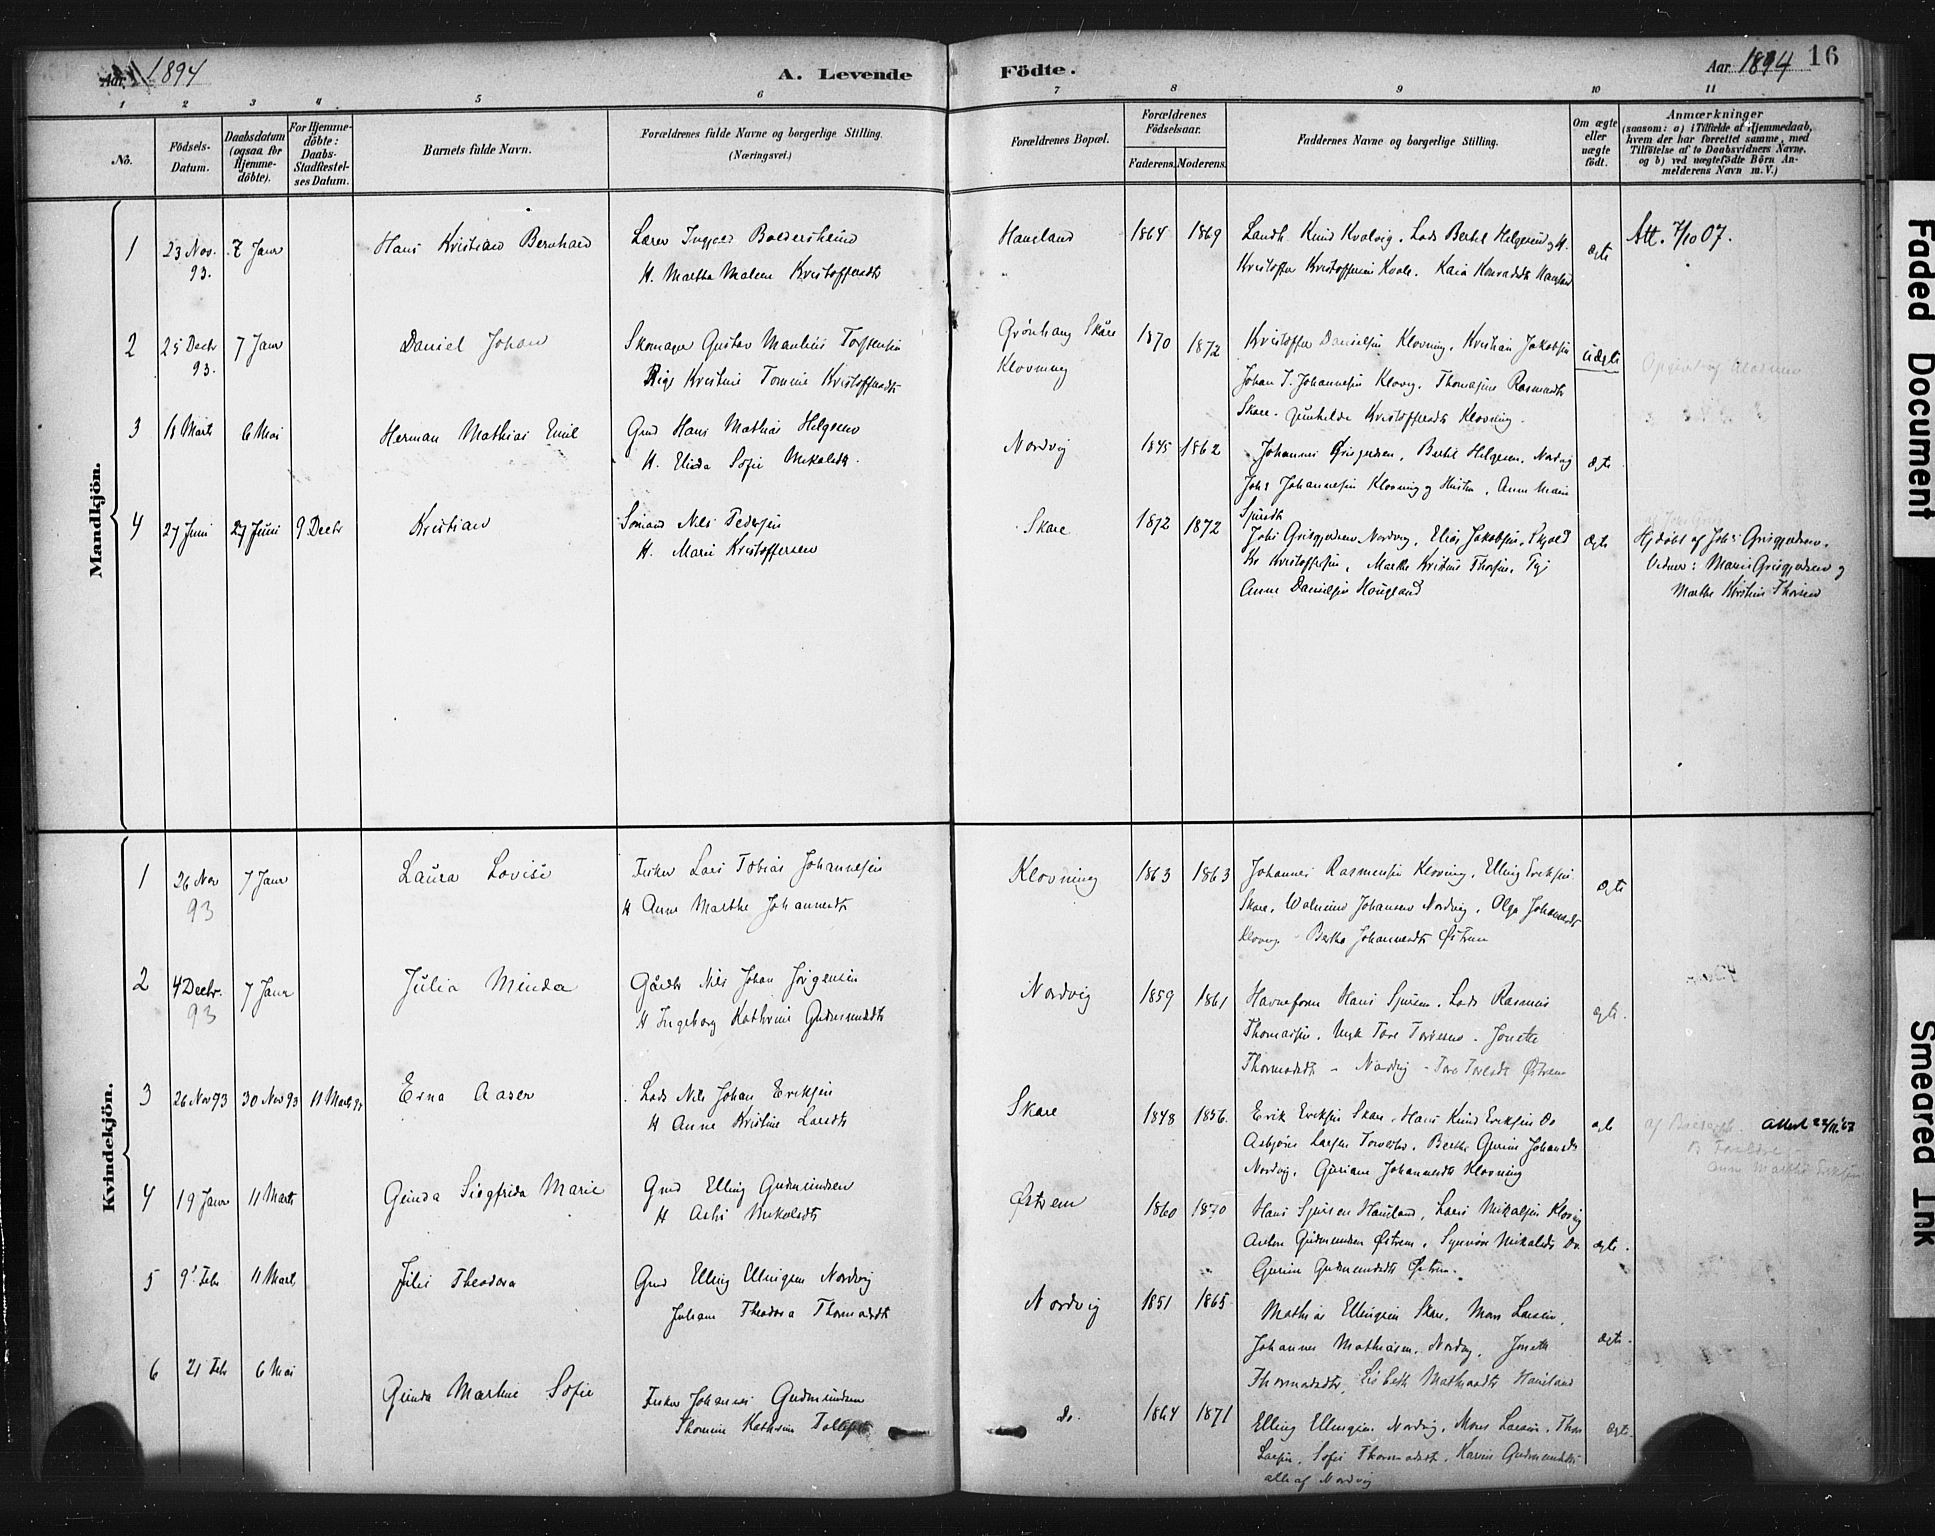 Aar 1894
A. Levende
Födte.
Aar 1894 16
1 2 3 4 5 6 7 8 9 10 11
No.
Födsels-Datum.
Daabsdatum (ogsaa för Hjemme-döbte).
For Hjemme-döbte: Daabs-Stadfæstel-ses Datum.
Barnets fulde Navn.
Forældrenes fulde Navne og borgerlige Stilling.
(Næringsvei.)
Forældrenes Bopæl.
Forældrenes Födselsaar.
Faderens. Moderens.
Faddernes Navne og borgerlige Stilling.
Om ægte eller uægte födt.
Anmærkninger
(saasom: a) i Tilfælde af Hjemmedaab,
hvem der har forrettet samme, med
Tilföielse af to Daabsvidners Navne.
og b) ved uægtefödte Börn An-
melderens Navn m. V.)
Mandkjön.
1 23 Nov. 93. 7 Janr Hans Kristian Bernhard
H. Marthe Malene Kristoffersdtr
Haugland 1864 1869
ægte
Att. 7/10 07.
2 25 Decbr 93. 7 Janr Daniel Johan
Skomager Gustav
Pige Kristine Tomine Kristoffersdtr
Grönhaug Skåre
Klovning
1870 1872
Kristoffer Danielsen Klovning, Kristian Jakobsen
Johan J. Johannesen Klovng. Thomasine Rasmusdtr
Skare. Gunhilde Kristoffersdtr Klovning.
uægte
3 11 Marts 6 Mai Herman Mathias Emil
Gmd Hans Mathias Helgesen
H. Elida Sofie Mikalsdtr.
Nordvig 1845 1862
Johannes Helgesen, Nordvig
Johs Johannesen Klovning og Hustru, Anne Marie
ægte
4 27 Juni 27 Juni 9 Decbr Kristian
Nils Pedersen
H. Marie Kristoffersen
Skare 1872 1872
Nordvig, Elias Jakobsen,
Kristoffersen, Marthe Kristine Thorsen,
Anne Danielsen Haugland
ægte
Hjdöbt af Johs
Vidner: Marie og
Marthe Kristine Thorsen
Kvindekjön.
1 26 Nov 93 7 Janr Laura Lovise
Fisker Lars Tobias Johannesen
H Anne Marthe Johannesdtr
Klovning 1863 1863
Johannes Rasmussen Klovning, Elling Eriksen
Skare, Johansen Nordvig, Olga Johannesdtr
Klovng - Berthe Johannesdtr Østrem
ægte
2 4 Decbr. 93 7 Janr Julia Minda
Gårdbr Nils Johan Jörgensen
H Ingeborg Kathrine Gudmundsdtr
Nordvig 1859 1861
Havneform Hans Sjursen. Lods Rasmus
Thomassen, Tore
Nordvig - Østrem
ægte.
3 26 Nov 93 30 Nov 93 11 Marts 94 Erna Aasen
Lods Nils Johan Eriksen
H Anne Kristine Larsdtr
Skare 1848 1856.
Erik Eriksen Skare, Hans Knud Eriksen Do
Asbjörn Larsen Berthe Gurine Johansdtr
Nordvig, Guriane Johannesdtr Klovning
ægte
Attest 22/11 67
4 19 Janr 11 Marts Gunda Siegfrida Marie
Gmd Elling Gudmundsen
H Mikalsdtr
Østrem 1860 1870
Hans Sjursen Haugland, Lars Mikalsen Klovng
Gudmundsen Østrem, Synnöve Mikalsdtr Do
Gurine Gudmundsdtr Østrem.
ægte.
5 9' Febr 11 Marts Julie Theodora
Gmd Elling Ellingsen Nordvig
Johanne Theodora Thormodsdtr
Nordvig 1851 1865
Mathias Ellingsen Skare, Mons Larsen,
Johannes Mathiasen, Nordvig, Jonette
Thormodsdtr, Lisbeth Mathiasdtr Haugland
ægte.
6 21 Febr 6 Mai Gunda Martine Sofie
Fisker Johannes Gudmundsen
Thomine Kathrine
do. 1864 1871
Elling Ellingsen Nordvig, Mons Larsen, Thor
Larsen, Sofie Thormodsdtr, Karine Gudmundsdtr
alle af Nordvig
ægte.
Faded Document
Smeared Ink